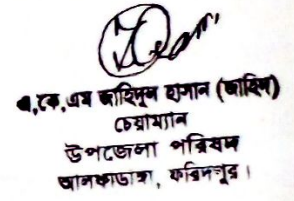 এ,কে,এম জাহিদুল হাসান (জাহিদ)
চেয়ারম্যান
উপজেলা পরিষদ
আলফাডাঙ্গা, ফরিদপুর।